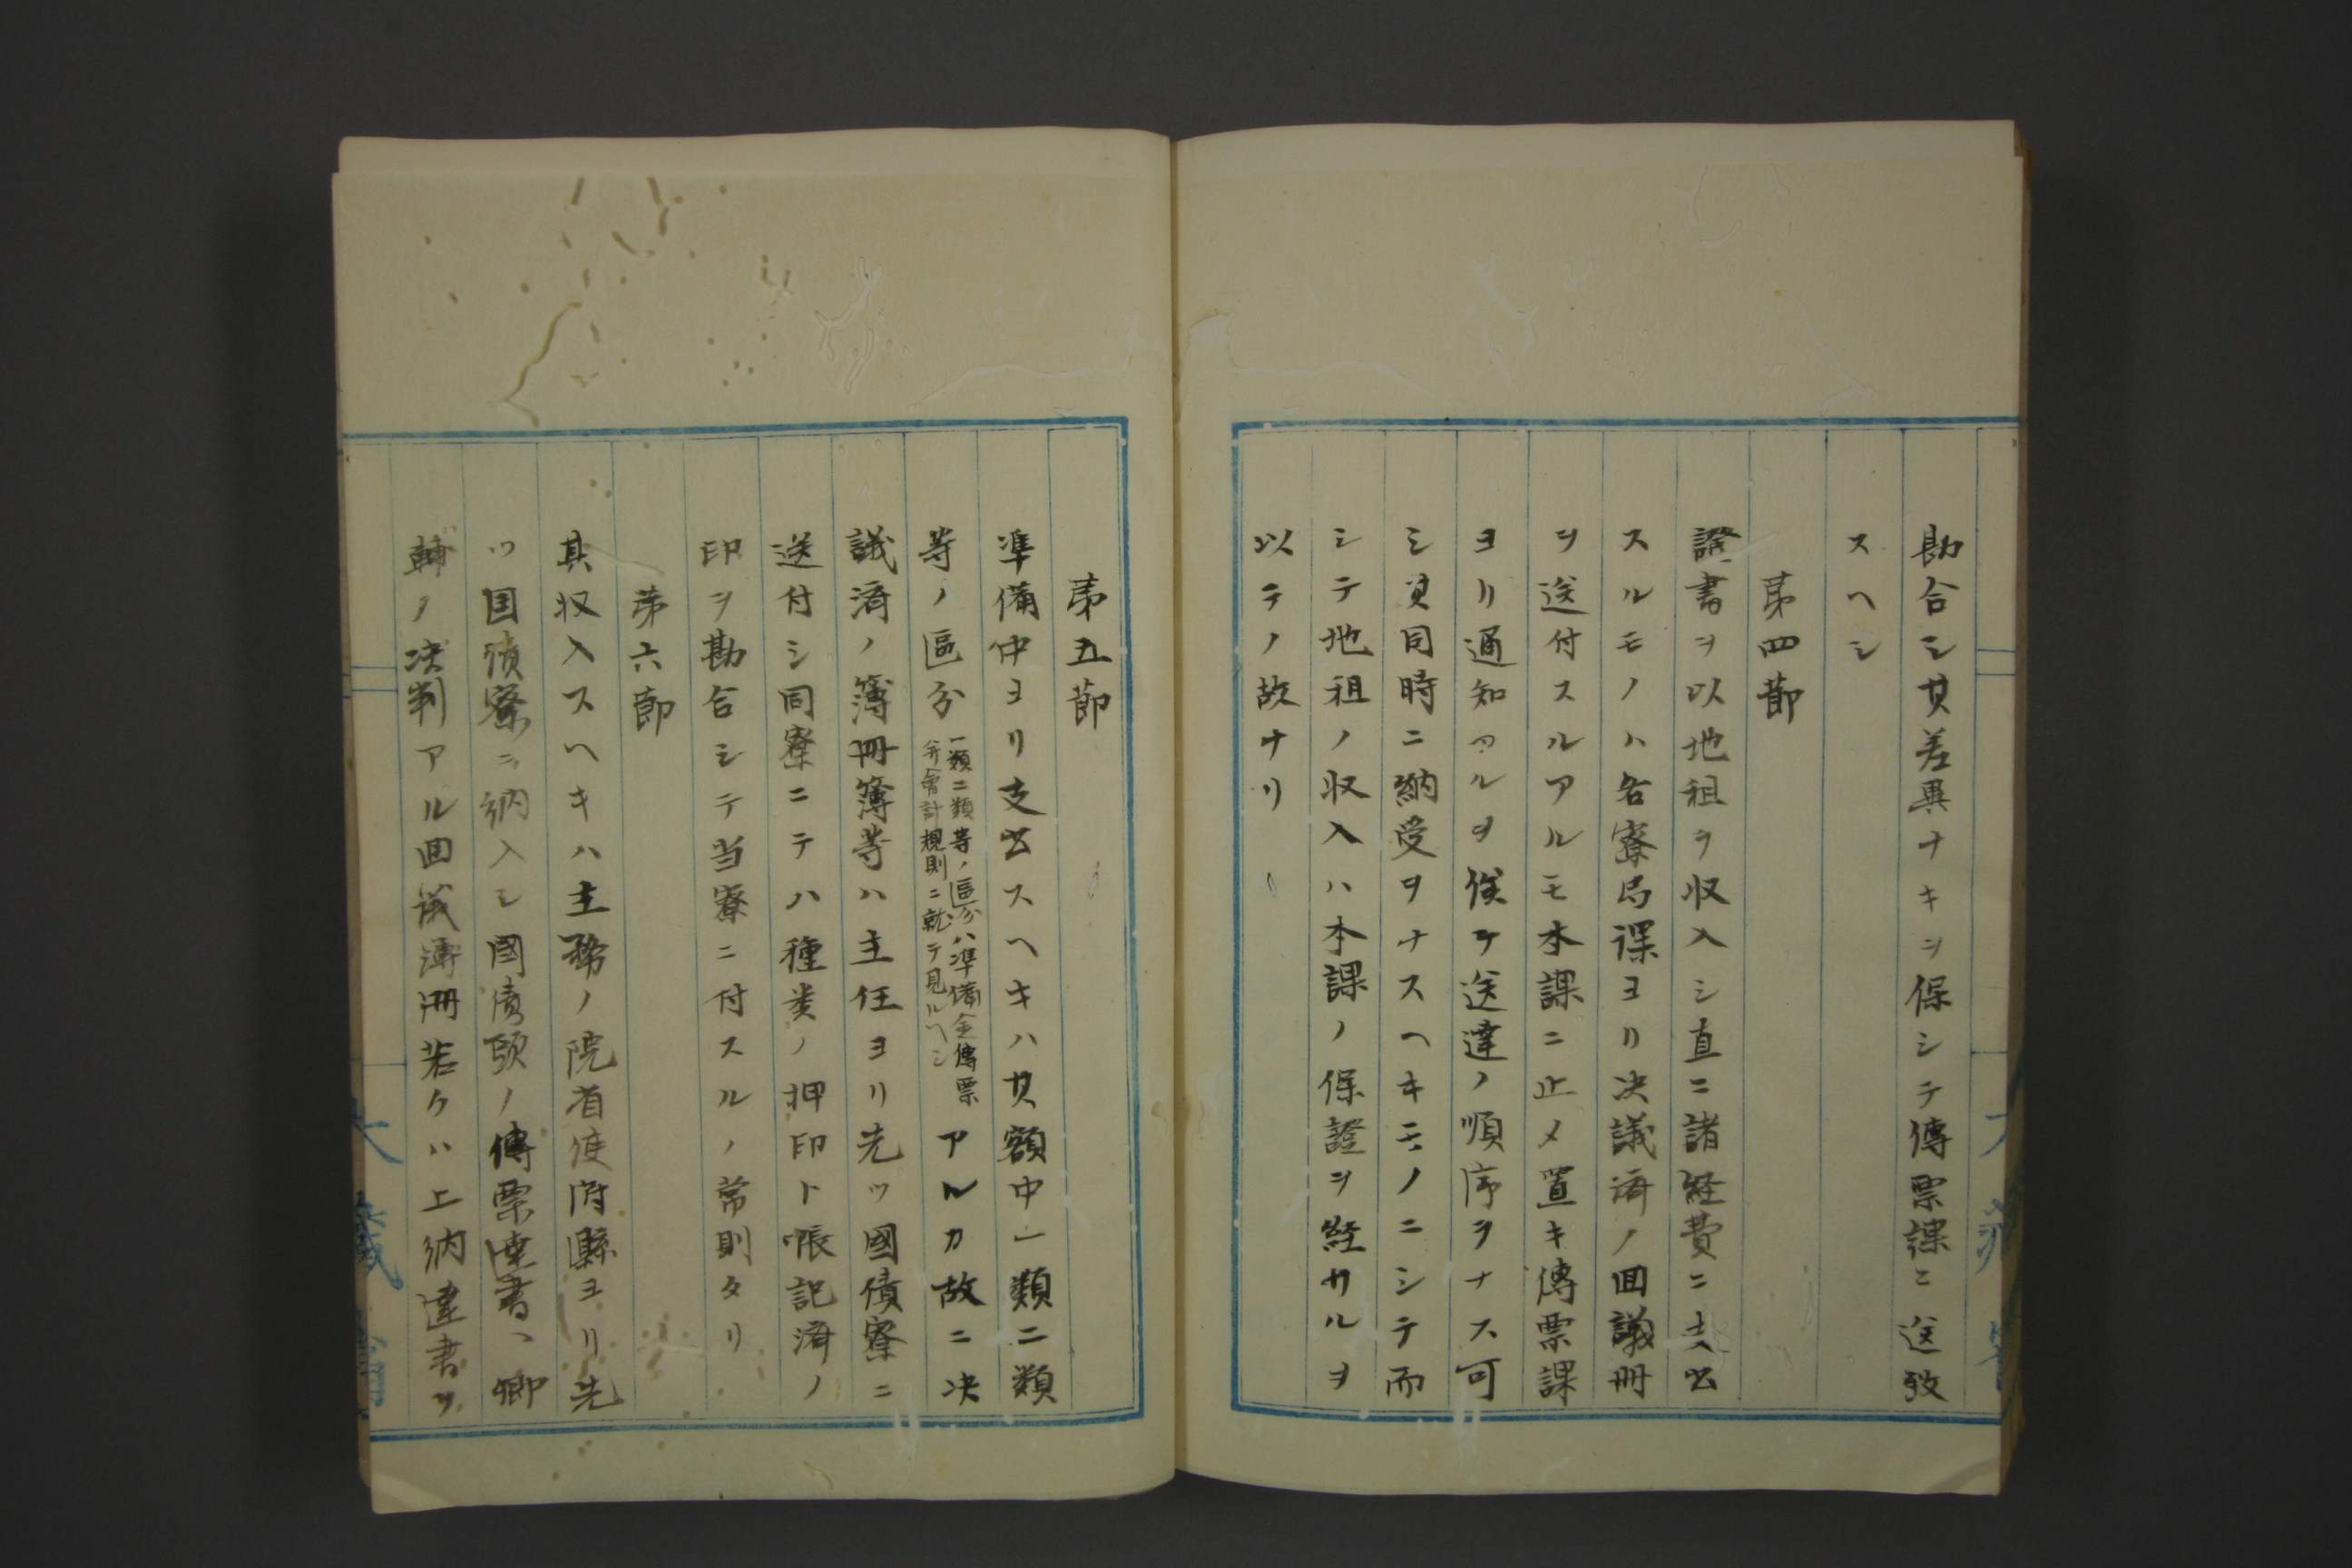 勘合シ其差異ナキヲ保シテ傳票課ニ送致
スヘシ
第四節
證書ヲ以地租ヲ収入シ直ニ諸経費ニ支出
スルモノハ各寮局課ヨリ決議済ノ回議冊
ヲ送付スルアルモ本課ニ止メ置キ傳票課
ヨリ通知アルヲ俟テ送達ノ順序ヲナス可
シ質同時ニ納受ヲナスヘキモノニシテ而
シテ地租ノ収入ハ本課ノ保證ヲ経サルヲ
以テノ故ナリ
第五節
準備中ヨリ支出スヘキハ其額中一類二類
等ノ區分
一類二類等ノ區分ハ準備金傳票
并會計規則ニ就テ見ルヘシ
アルカ故ニ決
議済ノ簿冊簿等ハ主任ヨリ先ツ國債寮ニ
送付シ同寮ニテハ種类ノ押印ト帳記済ノ
印ヲ勘合シテ当寮ニ付スルノ常則タリ
第六節
其収入スヘキハ主務ノ院省使府縣ヨリ先
ツ国債寮ニ納入シ國債頭ノ傳票連書、卿
輔ノ决判アル回議簿冊若クハ上納達書ヲ
大蔵省